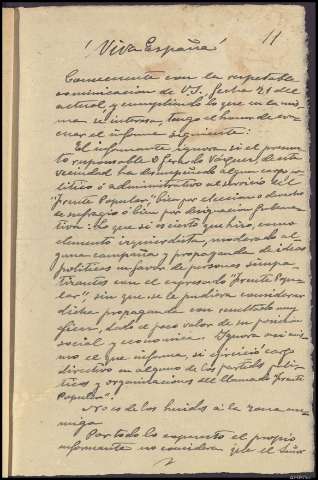 11
¡Viva España!
Consecuente con la respetable
comunicación de V.S., fecha 21 del
actual, y cumpliendo lo que en la mis-
ma se interesa, tengo el honor de eva-
cuar el informe siguiente:
El informante ignora si el presun-
to responsable D. Vázquez, de esta
vecindad ha desempeñado algun cargo po-
lítico ó administrativo al servicio del
"Frente Popular", bien por eleccion o derecho
de sufragio ó bien por designacion guberna-
tiva: lo que si es cierto que hizo, como
elemento izquierdista, moderado al-
guna campaña y propaganda de ideas
políticas en favor de personas simpa-
tizantes con el expresado "Frente Popu-
lar", sin que se le pudiera considerar
dicha propaganda con resultado muy
eficaz, dado el poco valor de su posicion
social y economica. Ignora asi mis-
mo el que informa, si ejerció cargo
directivo en alguno de los partidos politi-
cos y organizaciones del llamado "Frente
Popular".
No es de los huidos a la zona ene-
miga.
Por todo lo expuesto el propio
informante no considera que el Señor